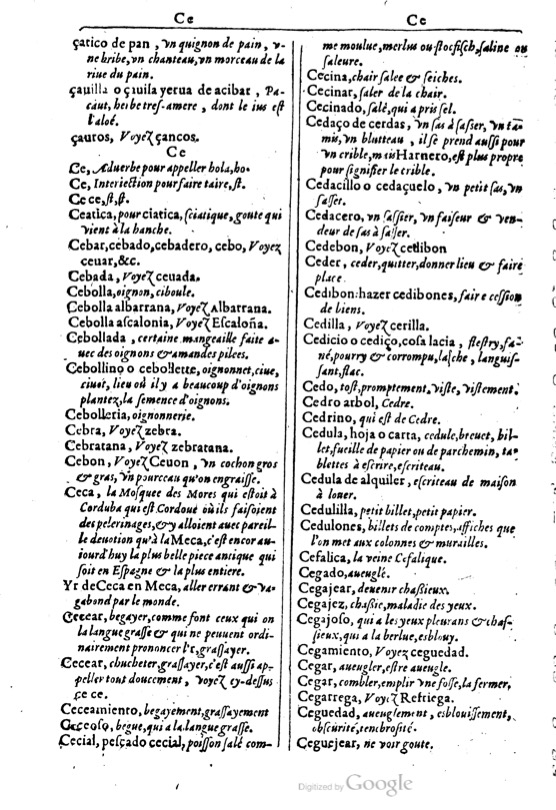 Ce
çatico de pan, vn quignon de pain, v-
ne bribe, vn chanteau, vn morceau de la
riue du pain.
çauilla o çiuila yerua de acibar, Pa-
caut, herbe tres-amere, dont le ius est
l'aloé.
çauros, Voyez çancos.
Ce
Ce, Aduerbe pour appeller hola, ho.
Ce, Interiection pour faire taire, st.
Ce ce, st, st.
Ceatica, pour ciatica, sciatique, goute qui
vient à la hanche.
Cebar, cebado, cebadero, cebo, Voyez
ceuar, &c.
Cebada, Voyez ceuada.
Cebolla, oignon, ciboule.
Cebolla albarrana, Voyez Albarrana.
Cebolla ascalonia, Voyez Escaloña.
Cebollada, certaine mangeaille faite a-
uec des oignons & amandes pilees.
Cebollino o cebollete, oignonnet, ciue,
ciuot, lieu où il y a beaucoup d'oignons
plantez, la semence d'oignons.
Cebolleria, oignonnerie.
Cebra, Voyez zebra.
Cebratana, Voyez zebratana.
Cebon, Voyez Ceuon, vn cochon gros
& gras, vn pourceau qu'on engraisse.
Ceca, la Mosquee des Mores qui estoit à
Corduba qui est Cordoüe où ils faisoient
des pelerinages, & y alloient auec pareil-
le deuotion qu'à la Meca, c'est encor au-
iourd'huy la plus belle piece antique qui
soit en Espagne & la plus entiere.
Yr de Ceca en Meca, aller errant & va-
gabond par le monde.
Cecear, begayer, comme font ceux qui on
la langue grasse & qui ne peuuent ordi-
nairement prononcer l'r, grassayer.
Cecear, chucheter, grassayer, c'est aussi ap-
peller tont doucement, voyez cy-dessus
ce ce.
Ceceamiento, begayement, grassayement
Ceceoso, begue, qui a la langue grasse.
Cecial, pescado cecial, poisson salé com-
Ce
me moulue, merlus ou stocfisch, saline ou
saleure.
Cecina, chair salee & seiches.
Cecinar, saler de la chair.
Cecinado, salé, qui a pris sel.
Cedaço de cerdas, vn sas à sasser, vn ta-
mis, vn blutteau, il se prend aussi pour
vn crible, mais Harnero, est plus propre
pour signifier le crible.
Cedacillo o cedaçuelo, vn petit sas, vn
sasser.
Cedacero, vn sassier, vn faiseur & ven-
deur de sas à sasser.
Cedebon, Voyez cedibon
Ceder, ceder, quitter, donner lieu & faire
place.
Cedibon: hazer cedibones, faire cession
de biens.
Cedilla, Voyez cerilla.
Cedicio o cediço, cosa lacia, flestry, fa-
né, pourry & corrompu, lasche, languis-
sant, flac.
Cedo, tost, promptement, viste, vistement.
Cedro arbol, Cedre.
Cedrino, qui est de Cedre.
Cedula, hoja o carta, cedule, breuet, bil-
let, fueille de papier ou de parchemin, ta-
blettes à escrire, escriteau.
Cedula de alquiler, escriteau de maison
à louer.
Cedulilla, petit billet, petit papier.
Cedulones, billets de comptes, affiches que
l'on met aux colonnes & murailles.
Cefalica, la veine Cefalique.
Cegado, aueuglé.
Cegajear, deuenir chassieux.
Cegajez, chassie, maladie des yeux.
Cegajoso, qui a les yeux pleurans & chas-
sieux, qui a la berlue, esblouy.
Cegamiento, Voyez ceguedad.
Cegar, aueugler, estre aueugle.
Cegar, combler, emplir vne fosse, la fermer,
Cegarrega, Voyez Refriega.
Ceguedad, aueuglement, esblouissement,
obscurité, tenebrosité.
Ceguejear, ne voir goute.
Digitized by Google